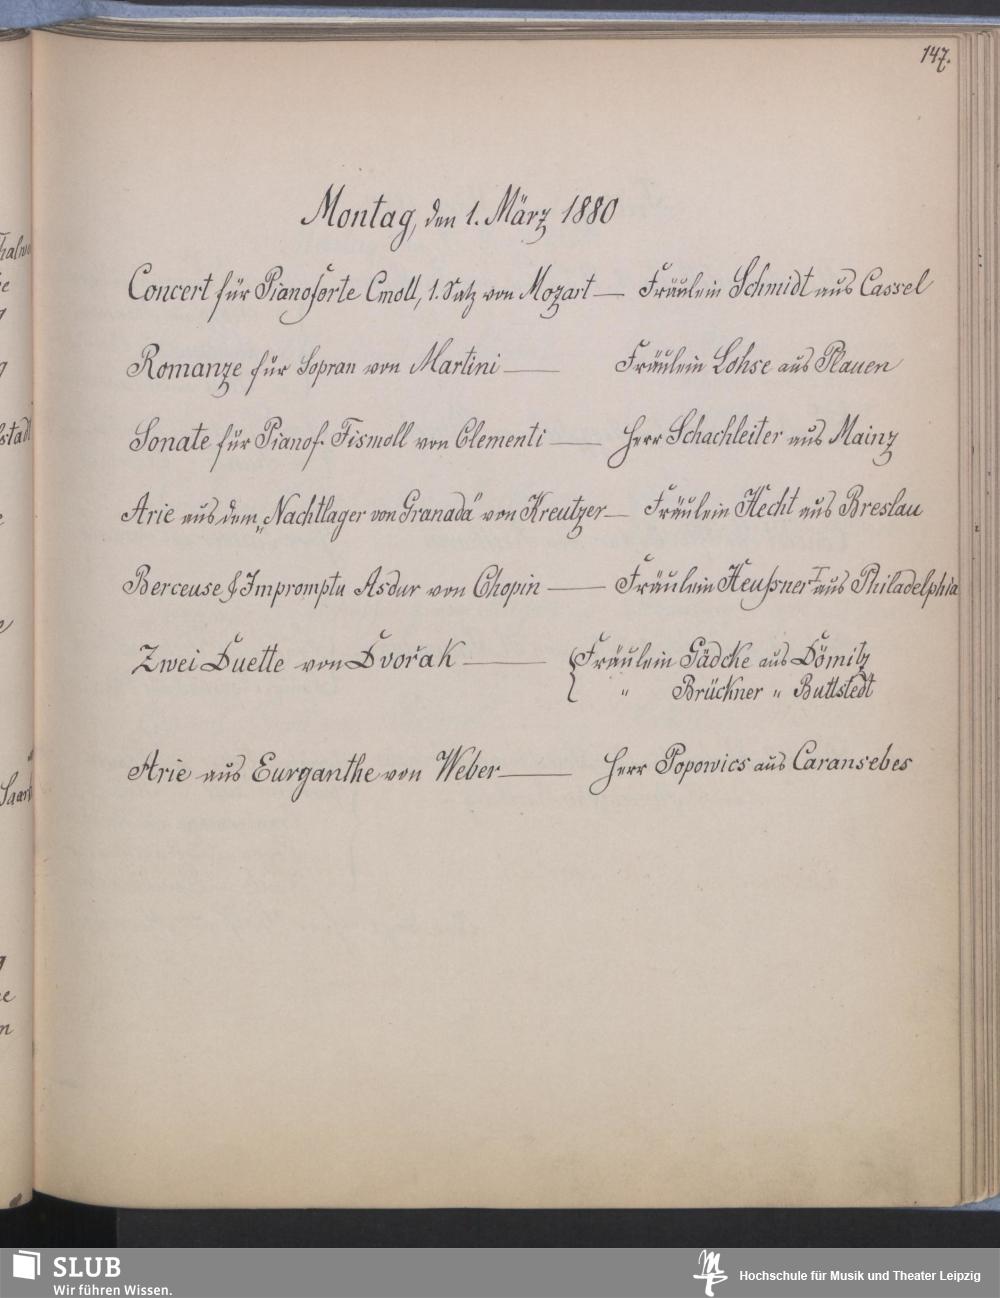 147.
Montag, den 1. März 1880
Concert für Pianoforte Cmoll, 1. Satz von Mozart — Fräulein Schmidt aus Cassel
Romanze für Sopran von Martini — Fräulein Lohse aus Plauen
Sonate für Pianof. Fismoll von Clementi — Herr Schachleiter aus Mainz
Arie aus dem „Nachtlager von Granada“ von Kreutzer — Fräulein Hecht aus Breslau
Berceuse & Impromptu Asdur von Chopin — Fräulein Heußner I aus Philadelphia
Zwei Duette von Dvořak — { Fräulein Gädcke aus Dömitz
„ Brückner „ Buttstedt
Arie aus Eurganthe von Weber — Herr Popowics aus Caransebes
SLUB
Wir führen Wissen.
Hochschule für Musik und Theater Leipzig